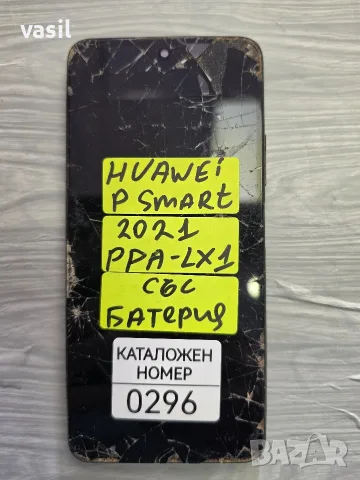 vasil
HUAWEI
P SMART
2021
PPA-LX1
СЪС
БАТЕРИЯ
КАТАЛОЖЕН
НОМЕР
0296
BAZAR